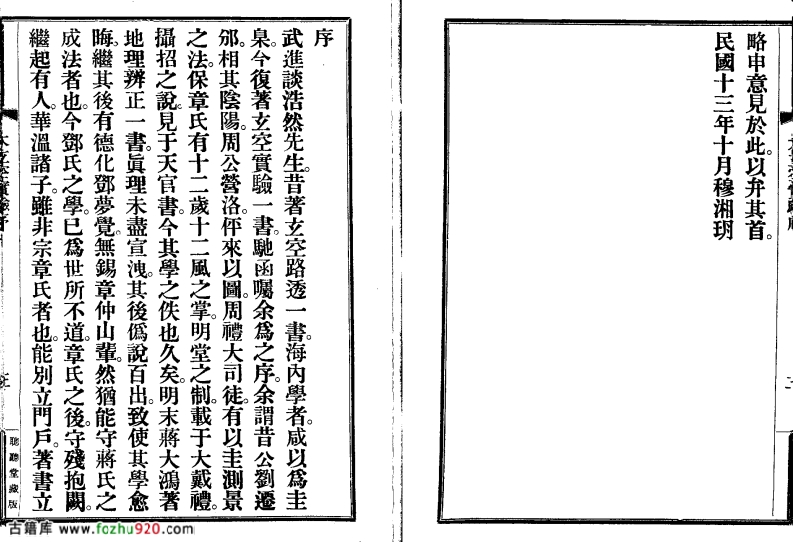 略申意見於此。以弁其首。
民國十三年十月穆湘玥
序
武進談浩然先生。昔著玄空路透一書。海內學者。咸以爲圭
臬。今復著玄空實驗一書。馳函囑余爲之序。余謂昔公劉遷
邠。相其陰陽。周公營洛。伻來以圖。周禮大司徒。有以圭測景
之法。保章氏有十二歲十二風之掌。明堂之制。載于大戴禮。
攝招之說。見于天官書。今其學之佚也久矣。明末蔣大鴻著
地理辨正一書。眞理未盡宣洩。其後僞說百出。致使其學愈
晦。繼其後有德化鄧夢覺。無錫章仲山輩。然猶能守蔣氏之
成法者也。今鄧氏之學。已爲世所不道。章氏之後。守殘抱闕。
繼起有人。華溫諸子。雖非宗章氏者也。能別立門戶。著書立
聽鸝堂藏版
古籍库 www.fozhu920.com